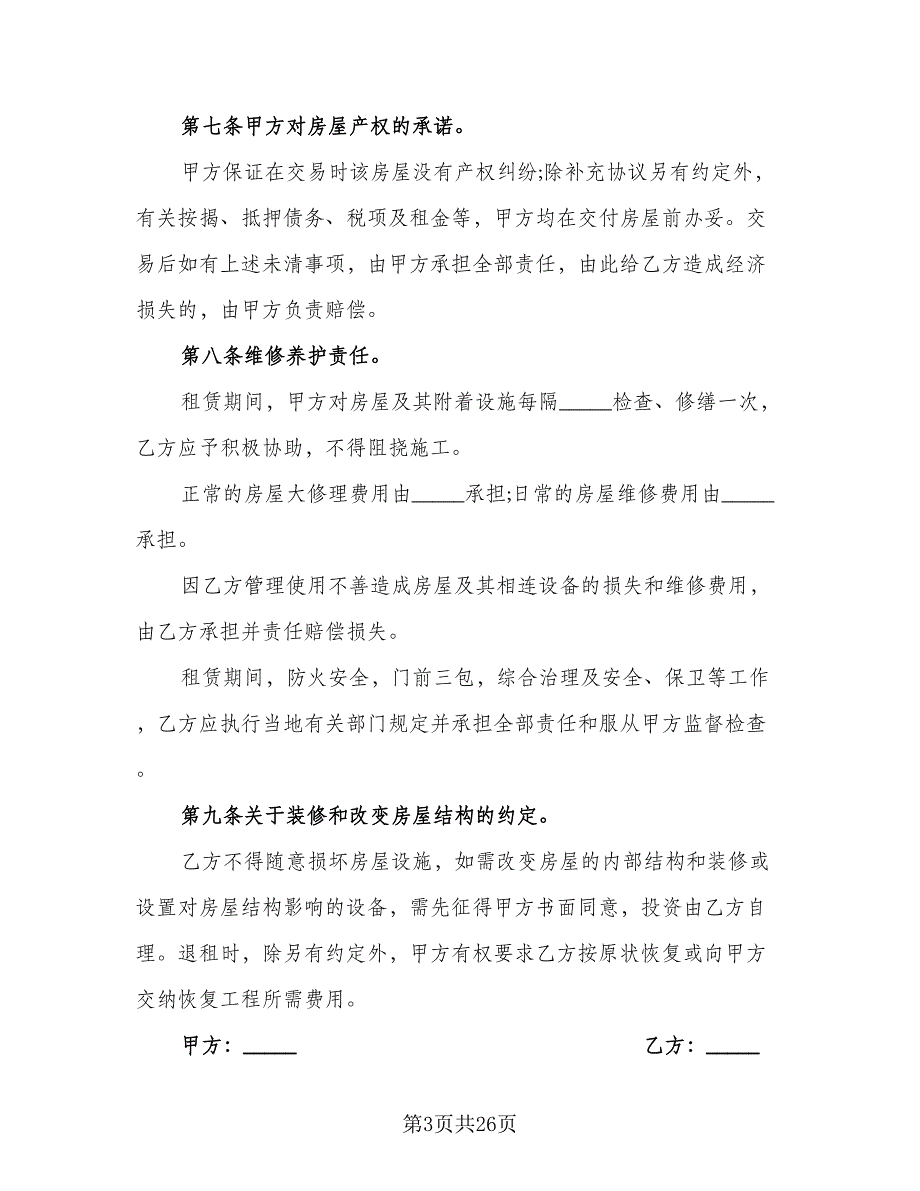 第七条甲方对房屋产权的承诺。
甲方保证在交易时该房屋没有产权纠纷;除补充协议另有约定外，
有关按揭、抵押债务、税项及租金等，甲方均在交付房屋前办妥。交
易后如有上述未清事项，由甲方承担全部责任，由此给乙方造成经济
损失的，由甲方负责赔偿。
第八条维修养护责任。
租赁期间，甲方对房屋及其附着设施每隔_____检查、修缮一次，
乙方应予积极协助，不得阻挠施工。
正常的房屋大修理费用由_____承担;日常的房屋维修费用由_____
承担。
因乙方管理使用不善造成房屋及其相连设备的损失和维修费用，
由乙方承担并责任赔偿损失。
租赁期间，防火安全，门前三包，综合治理及安全、保卫等工作
，乙方应执行当地有关部门规定并承担全部责任和服从甲方监督检查
。
第九条关于装修和改变房屋结构的约定。
乙方不得随意损坏房屋设施，如需改变房屋的内部结构和装修或
设置对房屋结构影响的设备，需先征得甲方书面同意，投资由乙方自
理。退租时，除另有约定外，甲方有权要求乙方按原状恢复或向甲方
交纳恢复工程所需费用。
甲方：_____ 乙方：_____
第3页共26页